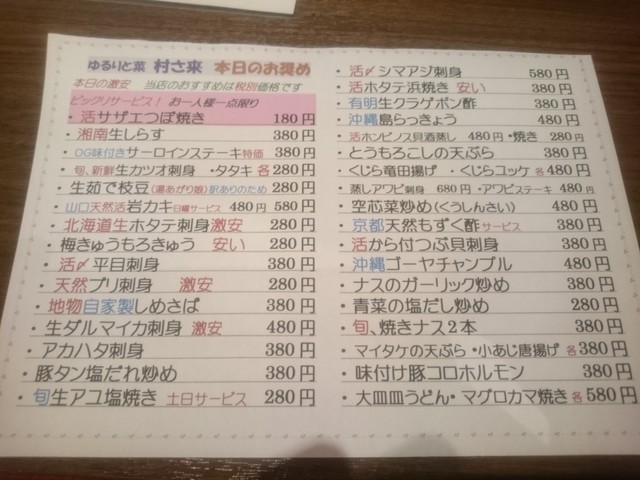 ゆるりと菜 村さ来 本日のお奨め
本日の激安 当店のおすすめは税別価格です
ビックリサービス! お一人様一点限り
・活サザエつぼ焼き 180円
・湘南生しらす 380円
・OG味付きサーロインステーキ特価 380円
・旬、新鮮生カツオ刺身 ・タタキ 各280円
・生茹で枝豆(湯あがり娘)訳ありのため 280円
・山口天然活岩カキ日曜サービス 480円 580円
・北海道生ホタテ刺身激安 280円
・梅きゅうもろきゅう 安い 280円
・活〆平目刺身 380円
・天然ブリ刺身 激安 280円
・地物自家製しめさば 380円
・生ダルマイカ刺身 激安 480円
・アカハタ刺身 380円
・豚タン塩だれ炒め 380円
・旬生アユ塩焼き 土日サービス 280円
・活〆シマアジ刺身 580円
・活ホタテ浜焼き 安い 380円
・有明生クラゲポン酢 380円
・沖縄島らっきょう 480円
・活ホンビノス貝酒蒸し 480円・焼き 280円
・とうもろこしの天ぷら 380円
・くじら竜田揚げ ・くじらコッケ 各480円
・蒸しアワビ刺身 680円 ・アワビステーキ 480円
・空芯菜炒め(くうしんさい) 480円
・京都天然もずく酢サービス 280円
・活から付つぶ貝刺身 380円
・沖縄ゴーヤチャンプル 480円
・ナスのガーリック炒め 380円
・青菜の塩だし炒め 280円
・旬、焼きナス2本 380円
・マイタケの天ぷら ・小あじ唐揚げ 各380円
・味付け豚コロホルモン 380円
・大皿皿うどん・マグロカマ焼き 各580円